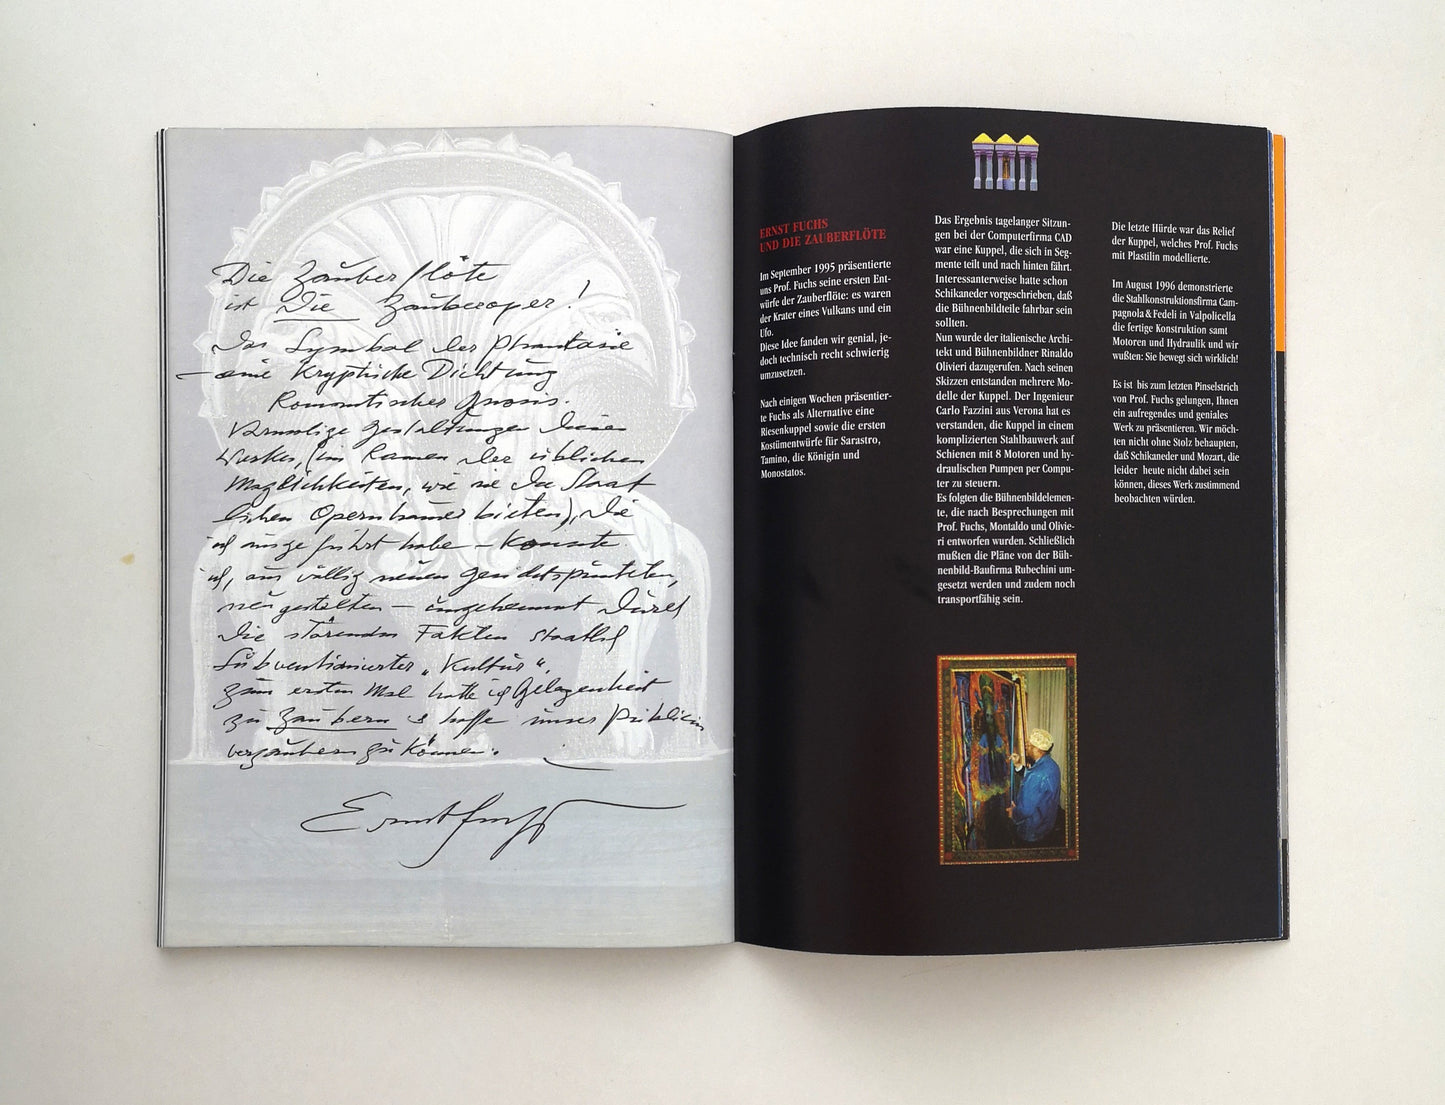 Die Zauberflöte
ist Die Zauberoper!
Das Symbol der Phantasie
– eine Kryptische Dichtung
Romantischer Gnosis.
Gestaltungen dieses
Werkes, (im Ramen der üblichen
Möglichkeiten, wie sie die Staat
lichen Opernhäuser bieten), die
ich ausgeführt habe – konnte
ich, aus völlig neuen Gesichtspunkten,
neu gestalten – ungehemmt durch
die störenden Fakten staatlich
Subventionierter „Kultur“,
zum ersten Mal hatte ich Gelegenheit
zu Zaubern & hoffe unser Publikum
verzaubern zu können.
Ernst Fuchs
ERNST FUCHS
UND DIE ZAUBERFLÖTE
Im September 1995 präsentierte
uns Prof. Fuchs seine ersten Ent-
würfe der Zauberflöte: es waren
der Krater eines Vulkans und ein
Ufo.
Diese Idee fanden wir genial, je-
doch technisch recht schwierig
umzusetzen.
Nach einigen Wochen präsentier-
te Fuchs als Alternative eine
Riesenkuppel sowie die ersten
Kostümentwürfe für Sarastro,
Tamino, die Königin und
Monostatos.
Das Ergebnis tagelanger Sitzun-
gen bei der Computerfirma CAD
war eine Kuppel, die sich in Seg-
mente teilt und nach hinten fährt.
Interessanterweise hatte schon
Schikaneder vorgeschrieben, daß
die Bühnenbildteile fahrbar sein
sollten.
Nun wurde der italienische Archi-
tekt und Bühnenbildner Rinaldo
Olivieri dazugerufen. Nach seinen
Skizzen entstanden mehrere Mo-
delle der Kuppel. Der Ingenieur
Carlo Fazzini aus Verona hat es
verstanden, die Kuppel in einem
komplizierten Stahlbauwerk auf
Schienen mit 8 Motoren und hy-
draulischen Pumpen per Compu-
ter zu steuern.
Es folgten die Bühnenbildelemen-
te, die nach Besprechungen mit
Prof. Fuchs, Montaldo und Olivie-
ri entworfen wurden. Schließlich
mußten die Pläne von der Büh-
nenbild-Baufirma Rubechini um-
gesetzt werden und zudem noch
transportfähig sein.
Die letzte Hürde war das Relief
der Kuppel, welches Prof. Fuchs
mit Plastilin modellierte.
Im August 1996 demonstrierte
die Stahlkonstruktionsfirma Cam-
pagnola & Fedeli in Valpolicella
die fertige Konstruktion samt
Motoren und Hydraulik und wir
wußten: Sie bewegt sich wirklich!
Es ist bis zum letzten Pinselstrich
von Prof. Fuchs gelungen, Ihnen
ein aufregendes und geniales
Werk zu präsentieren. Wir möch-
ten nicht ohne Stolz behaupten,
daß Schikaneder und Mozart, die
leider heute nicht dabei sein
können, dieses Werk zustimmend
beobachten würden.